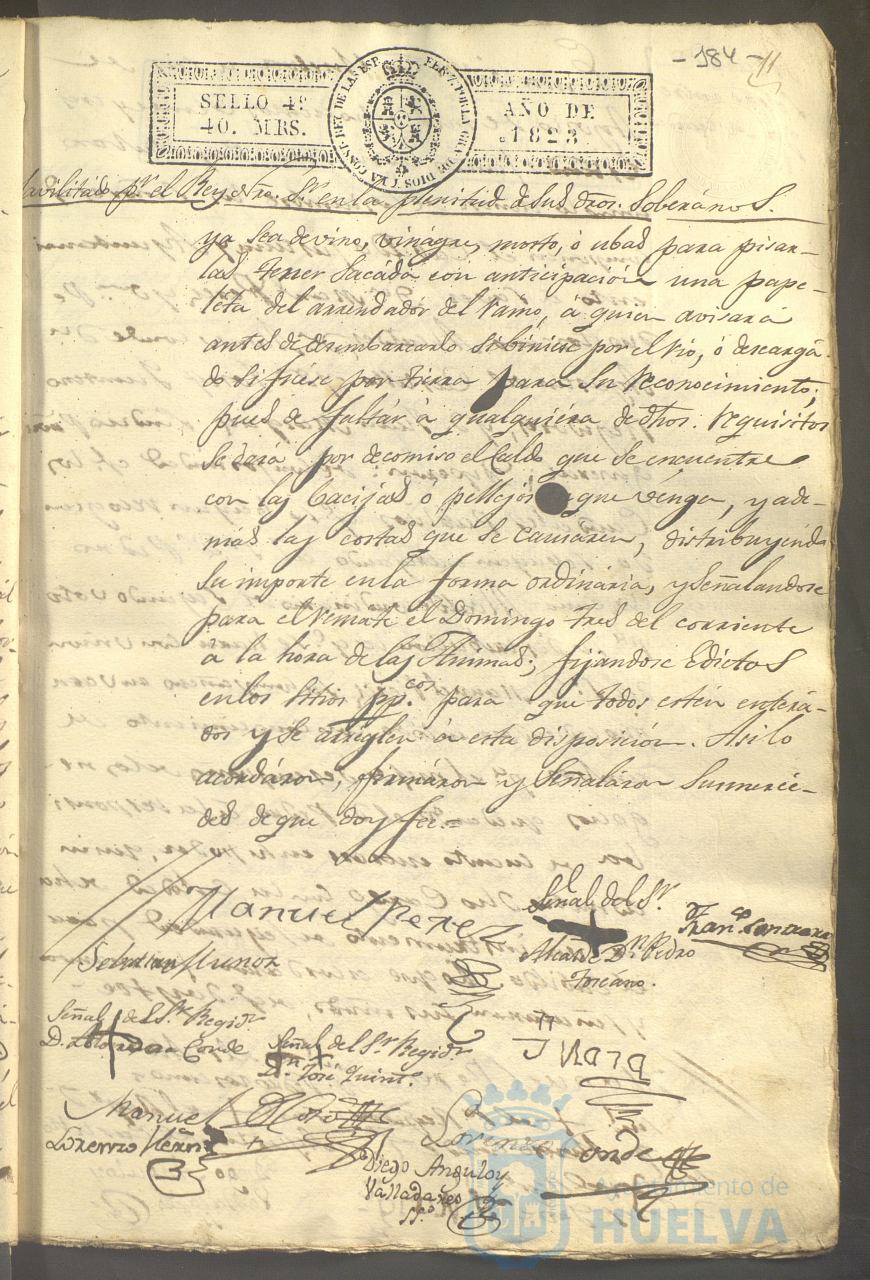 - 184 -
11
SELLO 4º
40. MRS.
AÑO DE
1823
FERN. 7 POR LA G. DE DIOS Y LA CONST. REY DE LAS ESP.
avilitado pr. el Rey Nro. Sr. en la plenitud de sus dros. Soberános.
ya sea de vino, vinágre, mosto, ó ubas para pisar-
las tener sacáda con anticipación una pape-
leta del arrendadór del ramo, á quien avisará
antes de desembarcarlo si biniese por el rio, ó descargá-
do si fuése por tierra para su reconocimiento;
pues de faltár á qualquiera de dhos. requisitos
se dará por decomiso el caldo que se encuentre
con las bacijas ó pellejos que venga, y ade-
más las costas que se causaren, distribuyendo
su importe en la forma ordinária, y señalandose
para el remate el Domingo tres del corriente
á la hora de las Ánimas; fijandose Edictos
en los sitios ppcos. para que todos estén enterá-
dos y se arréglen á esta disposición. Asi lo
acordáron, firmáron y señaláron sus merce-
des de que doy fee.=
Manuel Perez
Señal del Sr.
Alcalde Dn. Pedro
Toscano.
Sebastian Munoz
Señal del Sr. Regidr.
D. Conde
Señal del Sr. Regidr.
Dn. José Quintº.
Manuel
Lorenzo
Lorenzo Conde
Diego Anguloy
Valladares
Ayuntamiento de
HUELVA